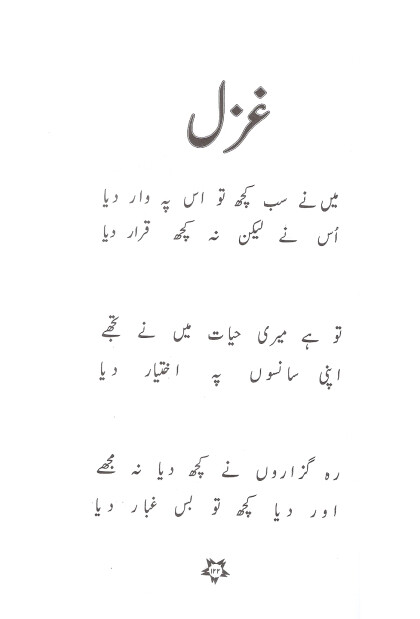 غزل
میں نے سب کچھ تو اس پہ وار دیا
اُس نے لیکن نہ کچھ قرار دیا
تو ہے میری حیات میں نے تجھے
اپنی سانسوں پہ اختیار دیا
رہ گزاروں نے کچھ دیا نہ مجھے
اور دیا کچھ تو بس غبار دیا
۱۲۳